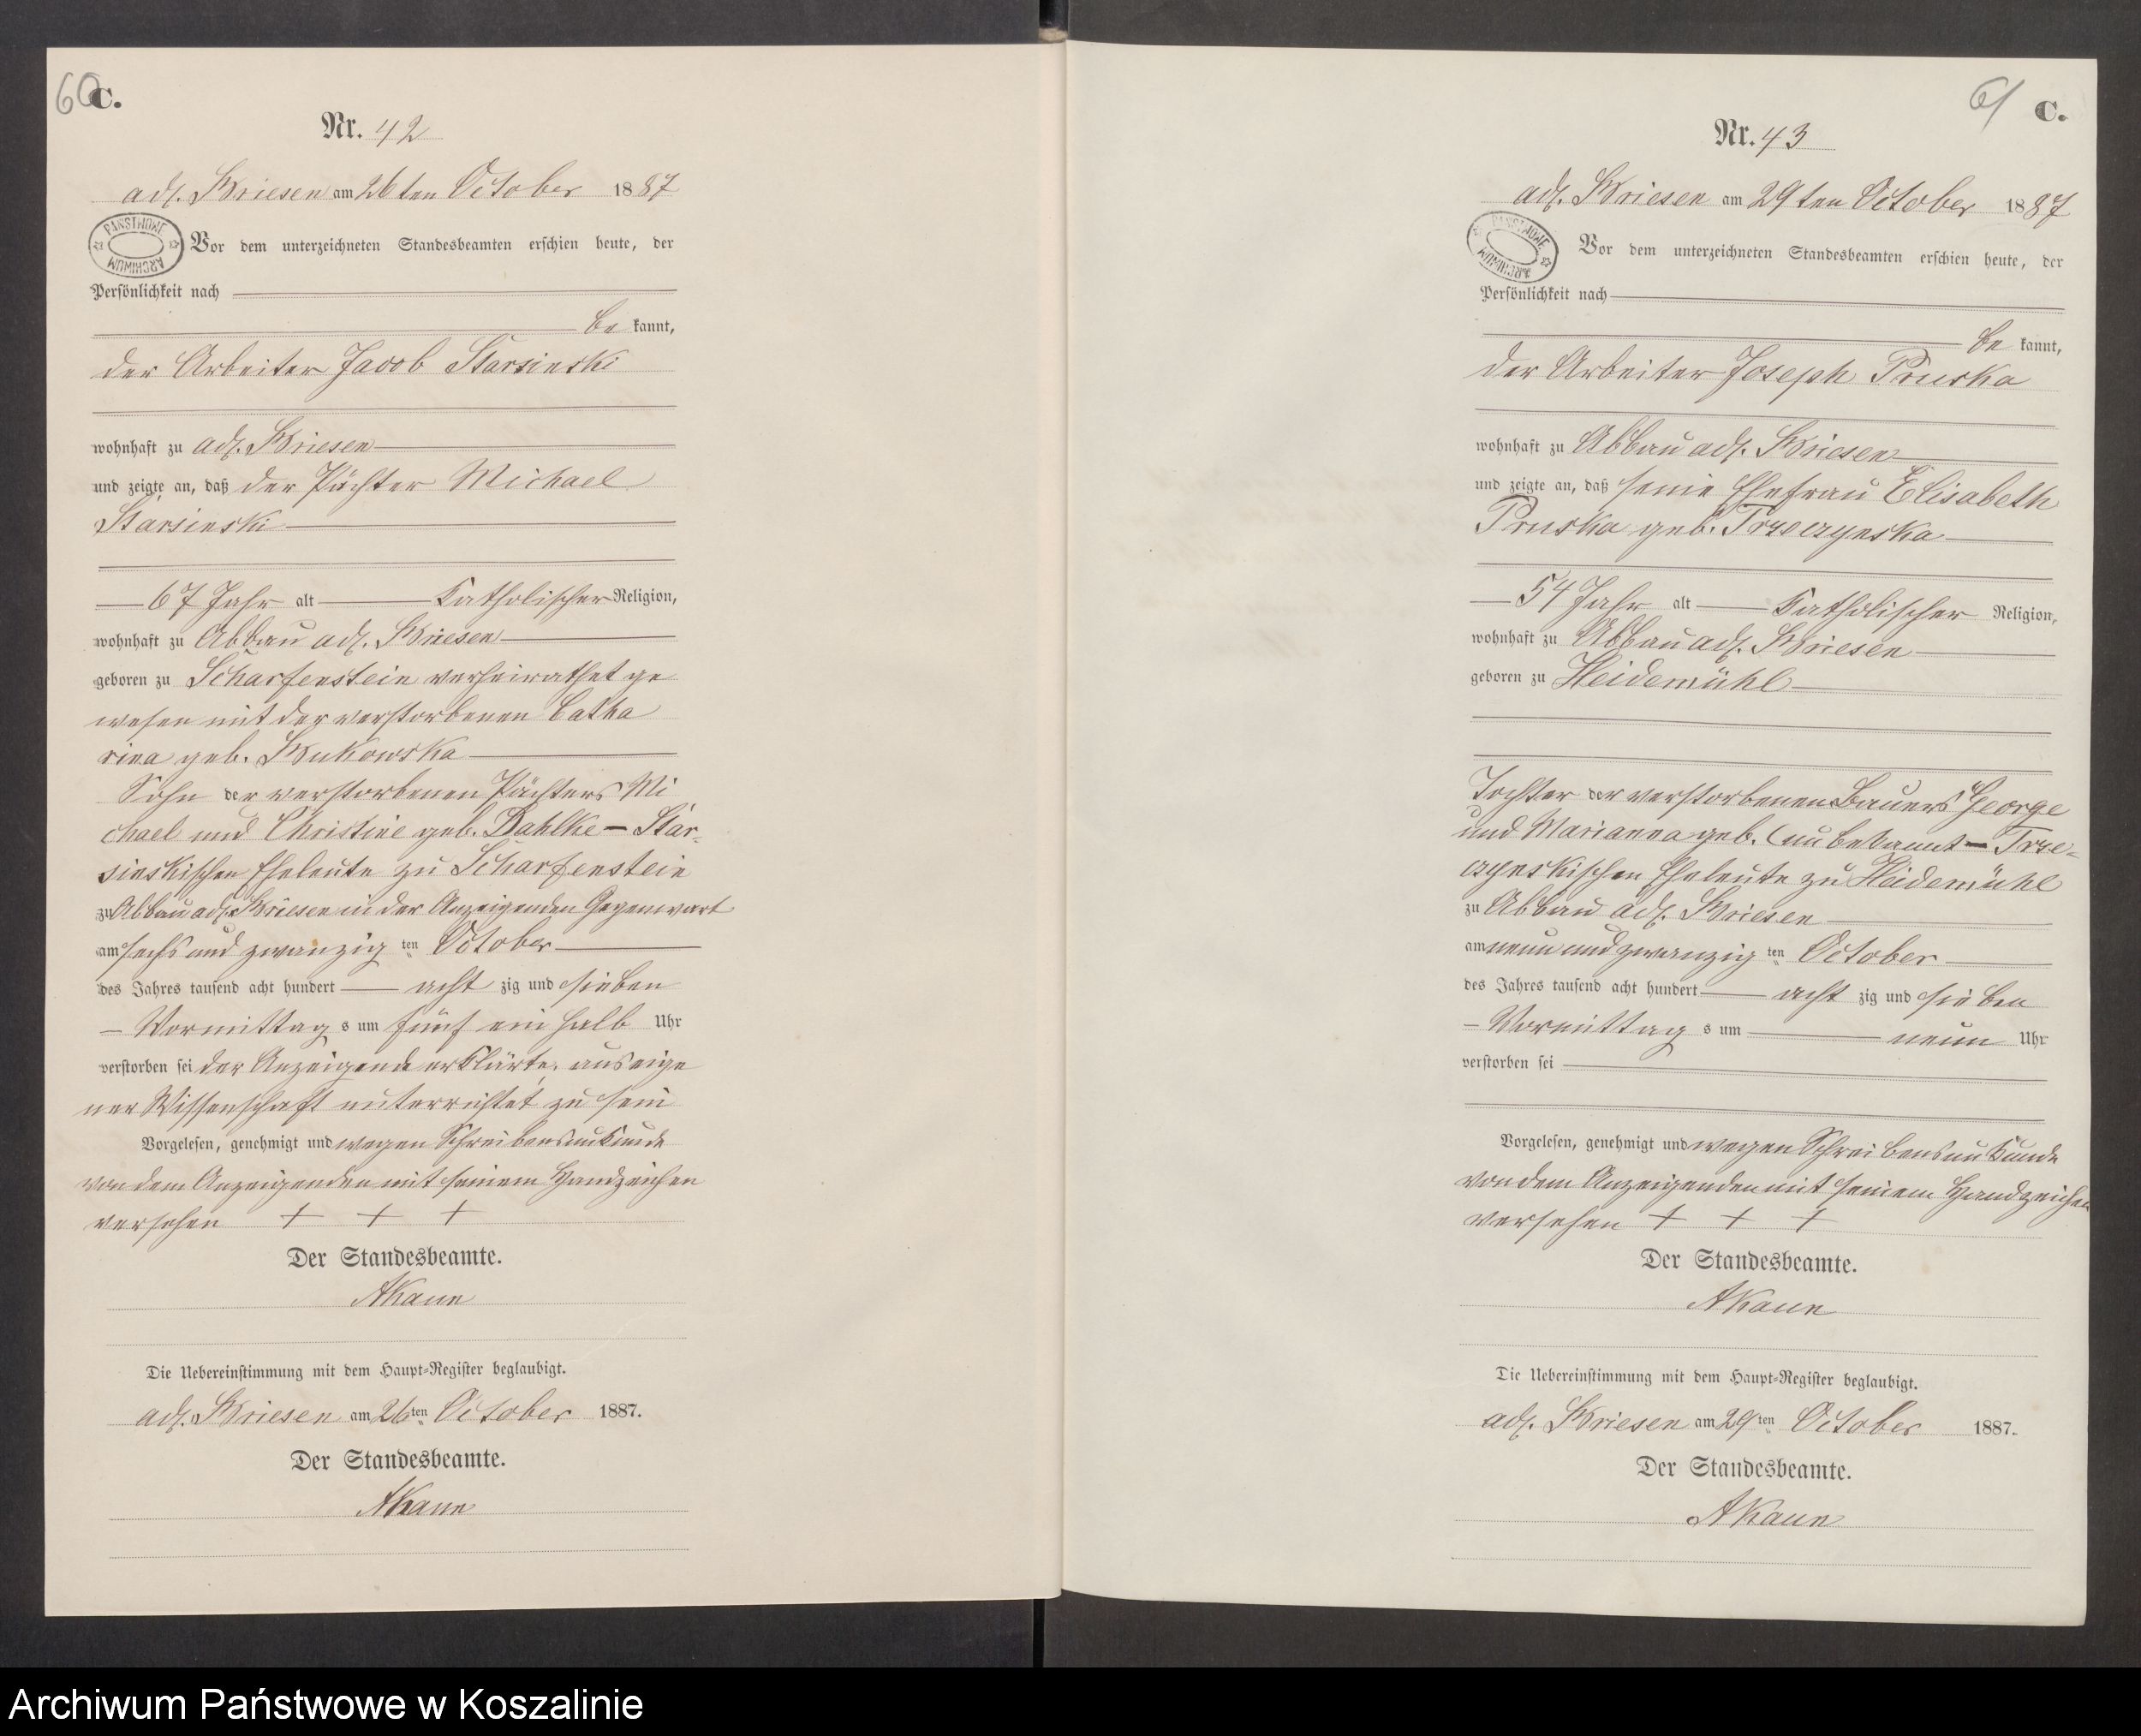 60 C.
Nr. 42
adl. Briesen am 26ten October 1887
PAŃSTWOWE ARCHIWUM
Vor dem unterzeichneten Standesbeamten erschien heute, der
Persönlichkeit nach
be kannt,
der Arbeiter Jacob Starsinski
wohnhaft zu adl. Briesen
und zeigte an, daß der Pächter Michael
Starsinski
67 Jahr alt Katholischer Religion,
wohnhaft zu Abbau adl. Briesen
geboren zu Scharfenstein verheirathet ge
wesen mit der verstorbenen Catha
rina geb. Bukowska
Sohn der verstorbenen Pächters Mi
chael und Christine geb. Dahlke – Star-
sinskischen Eheleute zu Scharfenstein
zu Abbau adl. Briesen in der Anzeigenden Gegenwart
am sechs und zwanzig ten October
des Jahres tausend acht hundert acht zig und sieben
Vormittag s um fünf ein halb Uhr
verstorben sei der Anzeigende erklärte, aus eige
ner Wissenschaft unterrichtet zu sein
Vorgelesen, genehmigt und wegen Schreibensunkunde
von dem Anzeigenden mit seinem Handzeichen
versehen + + +
Der Standesbeamte.
AKaun
Die Uebereinstimmung mit dem Haupt-Register beglaubigt.
adl. Briesen am 26ten October 1887.
Der Standesbeamte.
AKaun
61 C.
Nr. 43
adl. Briesen am 29ten October 1887
PAŃSTWOWE ARCHIWUM
Vor dem unterzeichneten Standesbeamten erschien heute, der
Persönlichkeit nach
be kannt,
der Arbeiter Joseph Pruska
wohnhaft zu Abbau adl. Briesen
und zeigte an, daß seine Ehefrau Elisabeth
Pruska geb. Trzeczynska
54 Jahr alt Katholischer Religion,
wohnhaft zu Abbau adl. Briesen
geboren zu Heidemühl
Tochter der verstorbenen Bauers George
und Marianna geb. (unbekannt – Trze-
czynskischen Eheleute zu Heidemühl
zu Abbau adl. Briesen
am neun und zwanzig ten October
des Jahres tausend acht hundert acht zig und sieben
Vormittag s um neun Uhr
verstorben sei
Vorgelesen, genehmigt und wegen Schreibensunkunde
von dem Anzeigenden mit seinem Handzeichen
versehen + + +
Der Standesbeamte.
AKaun
Die Uebereinstimmung mit dem Haupt-Register beglaubigt.
adl. Briesen am 29ten October 1887.
Der Standesbeamte.
AKaun
Archiwum Państwowe w Koszalinie